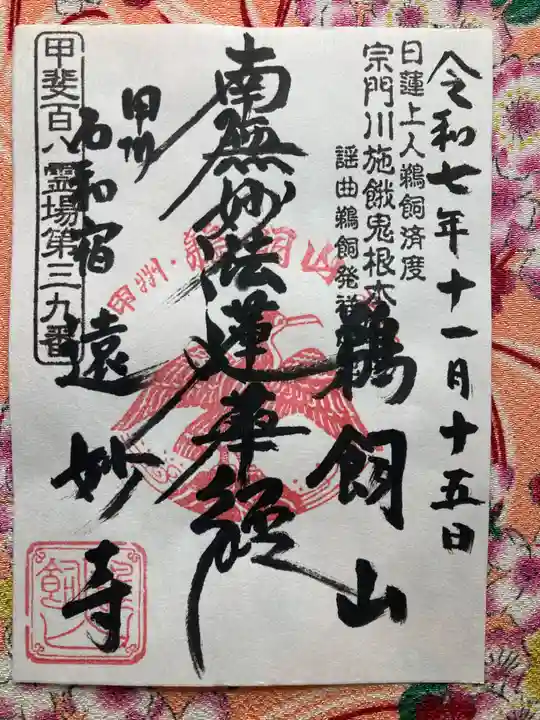 令和七年十一月十五日
日蓮上人鵜飼済度
宗門川施餓鬼根本
謡曲鵜飼発祥
鵜飼山
南無妙法蓮華経
甲州
石和宿
遠妙寺
甲斐百八霊場第三九番
甲州・鵜飼山